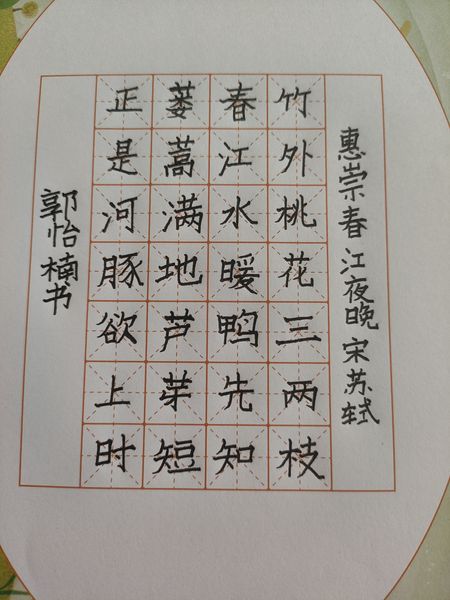 惠崇春江夜晚 宋 苏轼
竹外桃花三两枝
春江水暖鸭先知
蒌蒿满地芦芽短
正是河豚欲上时
郭怡楠书